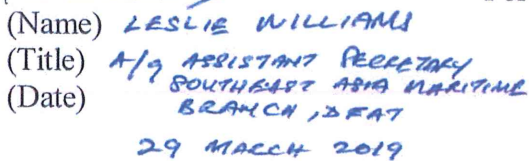 (Name) LESLIE WILLIAMS
(Title) A/g ASSISTANT SECRETARY
SOUTHEAST ASIA MARITIME
(Date) BRANCH, DFAT
29 MARCH 2019